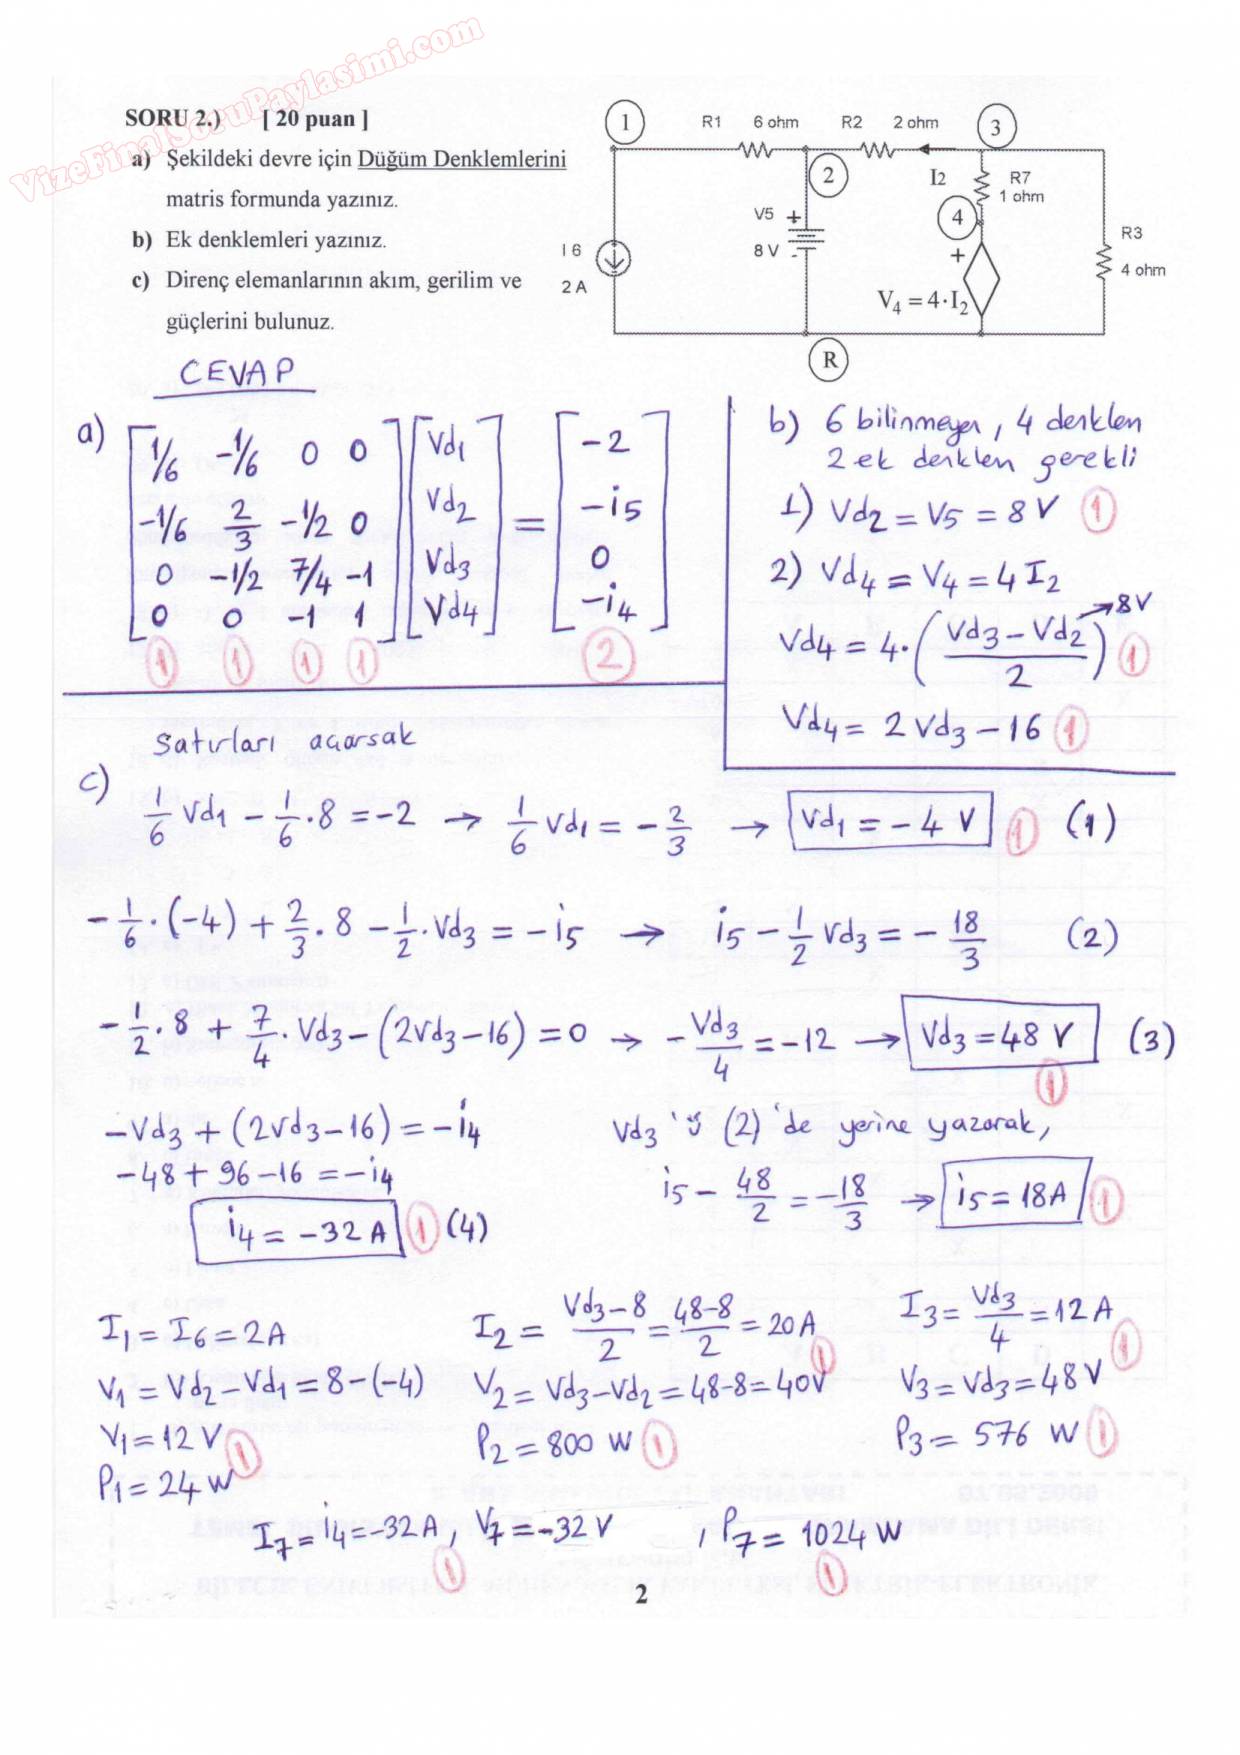 VizeFinalSoruPaylasimi.com
SORU 2.) [ 20 puan ]
a) Şekildeki devre için Düğüm Denklemlerini
matris formunda yazınız.
b) Ek denklemleri yazınız.
c) Direnç elemanlarının akım, gerilim ve
güçlerini bulunuz.
1 R1 6 ohm R2 2 ohm 3
2 I2 R7
1 ohm
V5 + 4
R3
I 6 8 V - + 4 ohm
2 A V₄ = 4·I₂
R
CEVAP
a)
1/6 -1/6 0 0 Vd1 -2
-1/6 2/3 -1/2 0 Vd2 = -i5
0 -1/2 7/4 -1 Vd3 0
0 0 -1 1 Vd4 -i4
1 1 1 1 2
b) 6 bilinmeyen, 4 denklem
2 ek denklem gerekli
1) Vd2 = V5 = 8V 1
2) Vd4 = V4 = 4 I2
Vd4 = 4·(Vd3 - Vd2 / 2) → 8V 1
Vd4 = 2 Vd3 - 16 1
Satırları açarsak
c)
1/6 Vd1 - 1/6 · 8 = -2 → 1/6 Vd1 = - 2/3 → Vd1 = -4 V 1 (1)
- 1/6 · (-4) + 2/3 · 8 - 1/2 · Vd3 = - i5 → i5 - 1/2 Vd3 = - 18/3 (2)
- 1/2 · 8 + 7/4 · Vd3 - (2Vd3 - 16) = 0 → - Vd3/4 = -12 → Vd3 = 48 V (3)
1
-Vd3 + (2Vd3 - 16) = - i4
-48 + 96 - 16 = - i4
i4 = -32 A 1 (4)
Vd3 'ü (2) 'de yerine yazarak,
i5 - 48/2 = - 18/3 → i5 = 18A 1
I1 = I6 = 2A
V1 = Vd2 - Vd1 = 8 - (-4)
V1 = 12 V 1
P1 = 24 W
I2 = Vd3 - 8 / 2 = 48-8 / 2 = 20A 1
V2 = Vd3 - Vd2 = 48 - 8 = 40V
P2 = 800 W 1
I3 = Vd3/4 = 12 A 1
V3 = Vd3 = 48 V
P3 = 576 W 1
I7 = i4 = -32 A, V7 = -32 V , P7 = 1024 W
1 1
2